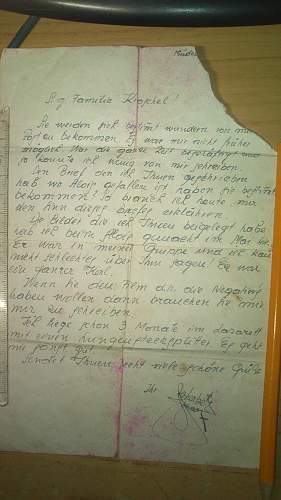 S.g. Familie Kroschel!
Sie werden sich bestimmt wundern von mir
Post zu bekommen. Es war mir nicht früher
möglich. War die ganze Zeit
so konnte ich wenig von mir schreiben.
Den Brief den ich Ihnen geschrieben
hab wo Alois gefallen ist haben Sie bestimmt
bekommen? So brauch ich heute mir
den Sinn dieses
Die Bilder die ich Ihnen beigelegt habe
hab ich beim Alois gemacht im Mai
Er war in meiner Gruppe und ich kann
nicht schlechter über ihn sagen! Er war
ein ganzer Kerl.
Wenn Sie den Film d.h. die Negative
haben wollen dann brauchen Sie mir
nur zu schreiben.
Ich liege schon 3 Monate im Lazarett
mit einen Lungenstecksplitter. Es geht
mir sonst gut.
Sendet Ihnen recht viele schöne Grüße
Ihr